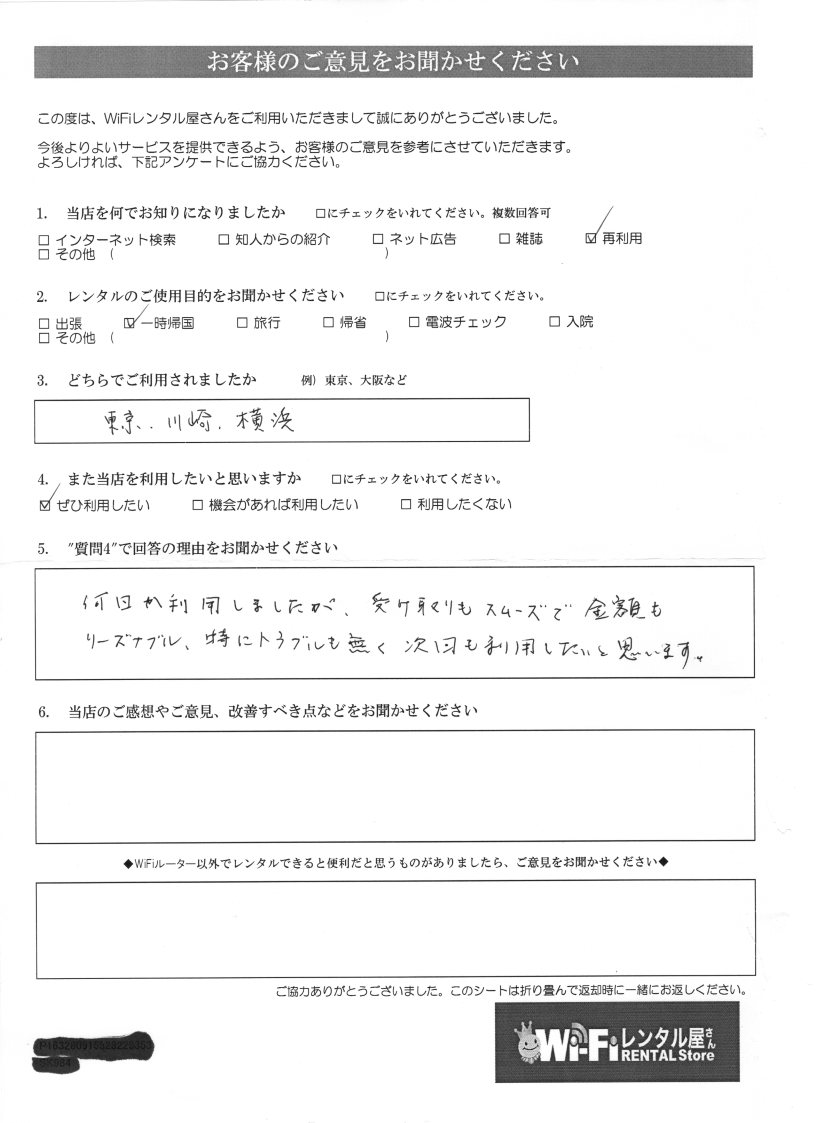 お客様のご意見をお聞かせください
この度は、WiFiレンタル屋さんをご利用いただきまして誠にありがとうございました。
今後よりよいサービスを提供できるよう、お客様のご意見を参考にさせていただきます。
よろしければ、下記アンケートにご協力ください。
1. 当店を何でお知りになりましたか □にチェックをいれてください。複数回答可
□ インターネット検索 □ 知人からの紹介 □ ネット広告 □ 雑誌 ☑ 再利用
□ その他 ( )
2. レンタルのご使用目的をお聞かせください □にチェックをいれてください。
□ 出張 ☑ 一時帰国 □ 旅行 □ 帰省 □ 電波チェック □ 入院
□ その他 ( )
3. どちらでご利用されましたか 例）東京、大阪など
東京、川崎、横浜
4. また当店を利用したいと思いますか □にチェックをいれてください。
☑ ぜひ利用したい □ 機会があれば利用したい □ 利用したくない
5. "質問4"で回答の理由をお聞かせください
何回か利用しましたが、受け取りもスムーズで金額も
リーズナブル、特にトラブルも無く次回も利用したいと思います。
6. 当店のご感想やご意見、改善すべき点などをお聞かせください
◆WiFiルーター以外でレンタルできると便利だと思うものがありましたら、ご意見をお聞かせください◆
ご協力ありがとうございました。このシートは折り畳んで返却時に一緒にお返しください。
Wi-Fiレンタル屋さん
RENTAL Store